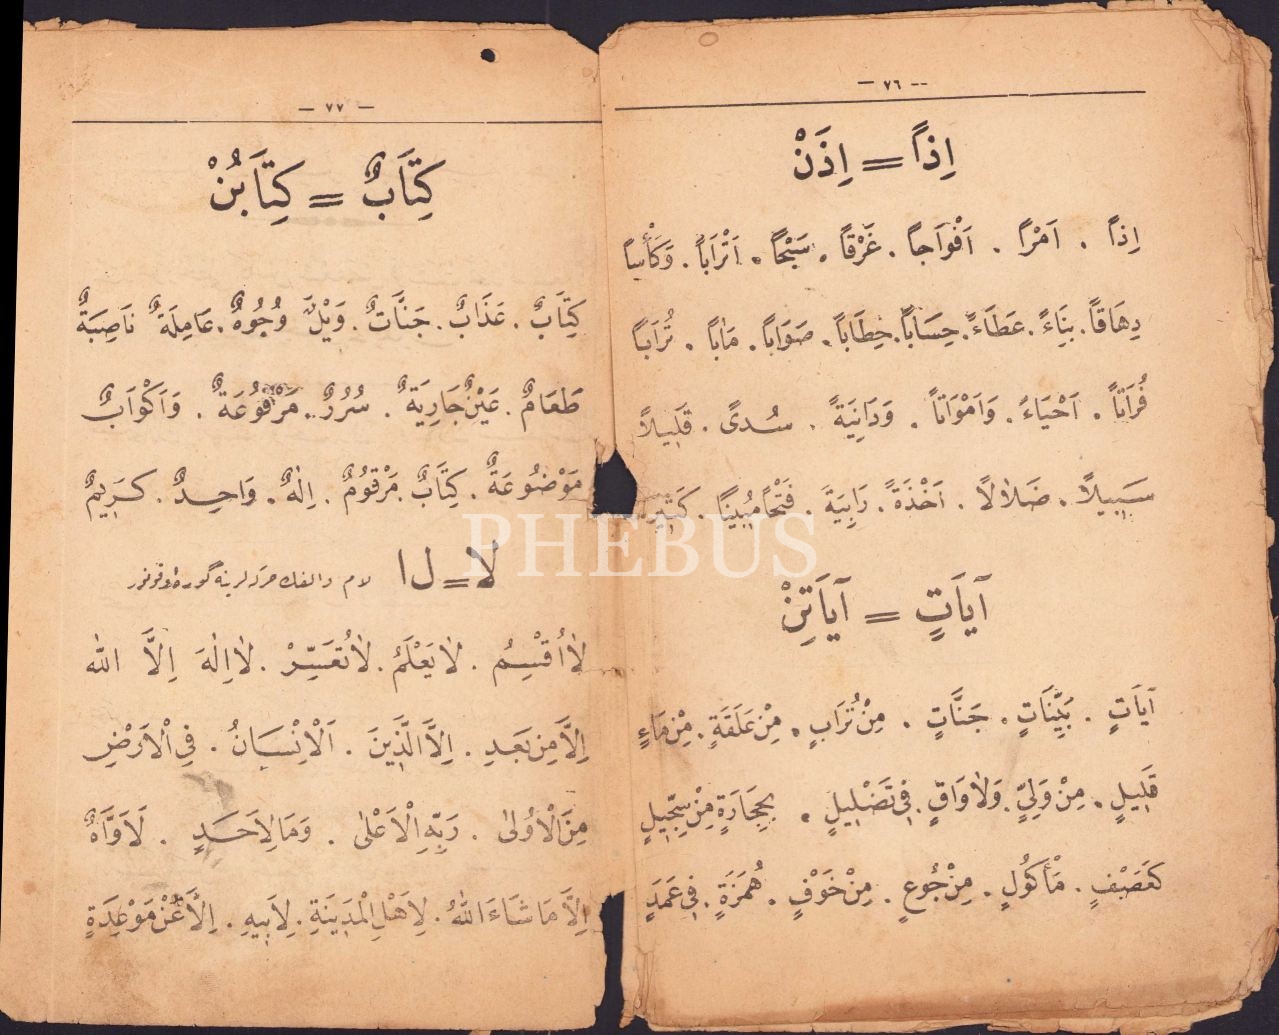 — ٧٦ --
اِذاً = اِذَنْ
اِذاً . اَمْراً . اَفْوَاجاً . غَرْقاً . سَبْحًا . اَتْرَاباً . وَكَأْساً
دِهَاقًا . بِنَاءً . عَطَاءً . حِسَاباً . خِطَاباً . صَوَاباً . مَاٰباً . تُرَاباً
فُرَاتًا . اَحْيَاءً . وَاَمْوَاتاً . وَدَانِيَةً . سُدىً . قَلٖيلاً
سَبٖيلاً . ضَلاٰلاً . اَخْذَةً . رَابِيَةً . فَتْحًا مُبٖينًا .
آيَاتٍ = آيَاتِنْ
آيَاتٍ . بَيِّنَاتٍ . جَنَّاتٍ . مِنْ تُرَابٍ . مِنْ عَلَقَةٍ . مِنْ مَاءٍ
قَلٖيلٍ . مِنْ وَلِيٍّ . وَلاٰ وَاقٍ . فٖى تَضْلٖيلٍ . بِحِجَارَةٍ مِنْ سِجّٖيلٍ
كَعَصْفٍ . مَأْكُولٍ . مِنْ جُوعٍ . مِنْ خَوْفٍ . هُمَزَةٍ . فٖى عَمَدٍ
— ٧٧ —
كِتَابٌ = كِتَابُنْ
كِتَابٌ . عَذَابٌ . جَنَّاتٌ . وَيْلٌ وُجُوهٌ . عَامِلَةٌ نَاصِبَةٌ
طَعَامٌ . عَيْنٌ جَارِيَةٌ . سُرُرٌ . مَرْفُوعَةٌ . وَاَكْوَابٌ
مَوْضُوعَةٌ . كِتَابٌ . مَرْقُومٌ . اِلٰهٌ . وَاحِدٌ . كَرٖيمٌ
لا = ل ا لام و الفك حركه لرينه گوره اوقونور
لاٰ اُقْسِمُ . لاٰ يَعْلَمُ . لاٰ تُعَسِّرْ . لاٰ اِلٰهَ اِلاَّ الله
اِلاَّ مِنْ بَعَدِ . اِلاَّ الَّذٖينَ . اَلْاِنْسَانُ . فِى الْاَرْضِ
مِنَ الْاُولٰى . رَبِّهِ الْاَعْلٰى . وَمَا لِاَحَدٍ . لَاَوَّاهٌ
اِلاَّ مَا شَاءَ اللهُ . لِاَهْلِ الْمَدٖينَةِ . لِاَبٖيهِ . اِلاَّ عَنْ مَوْعِدَةٍ
PHEBUS